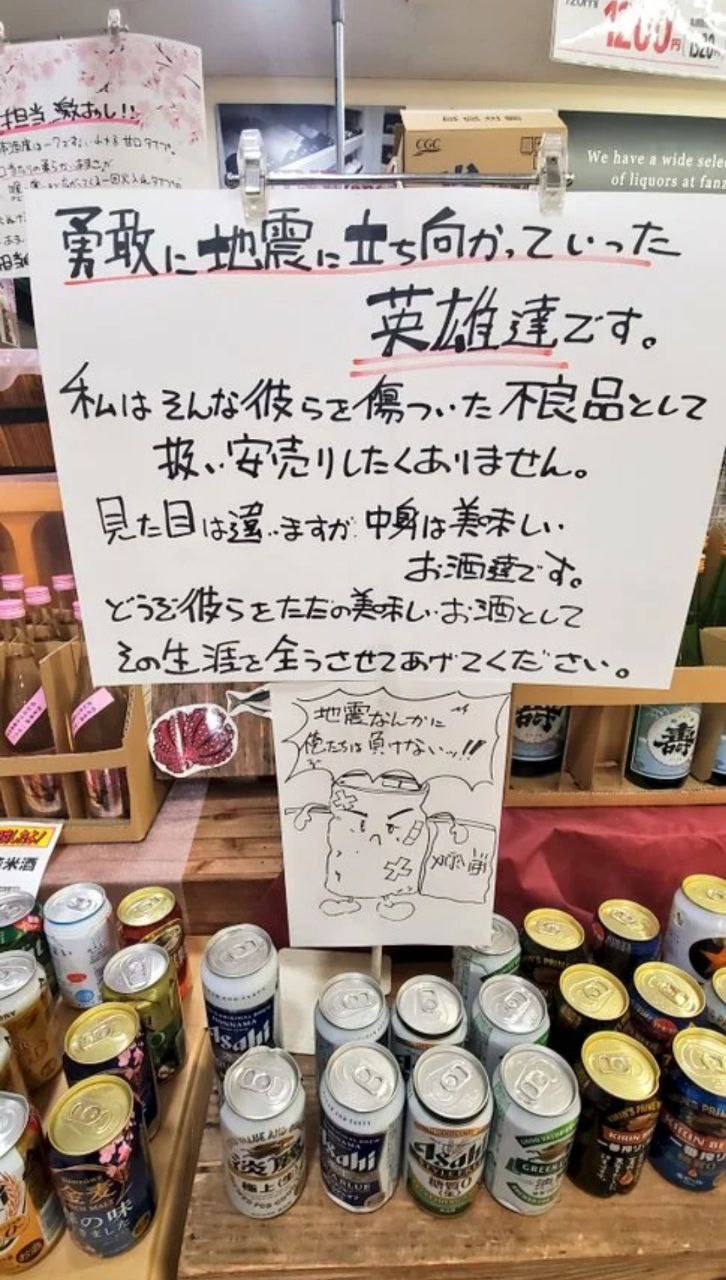 1200円
担当 激おし!!
CGC
We have a wide sele
of liquors at fan
勇敢に地震に立ち向かっていった
英雄達です。
私はそんな彼らを傷ついた不良品として
扱い安売りしたくありません。
見た目は違いますが中身は美味しい
お酒達です。
どうぞ彼らをただの美味しいお酒として
その生涯を全うさせてあげてください。
地震なんかに
俺たちは負けないッ!!
寿
米酒
Asahi
淡麗
極上
Asahi
Asahi
糖質0
GREEN
KIRIN
一番搾り
KIRIN
一番搾り
金麦
の味